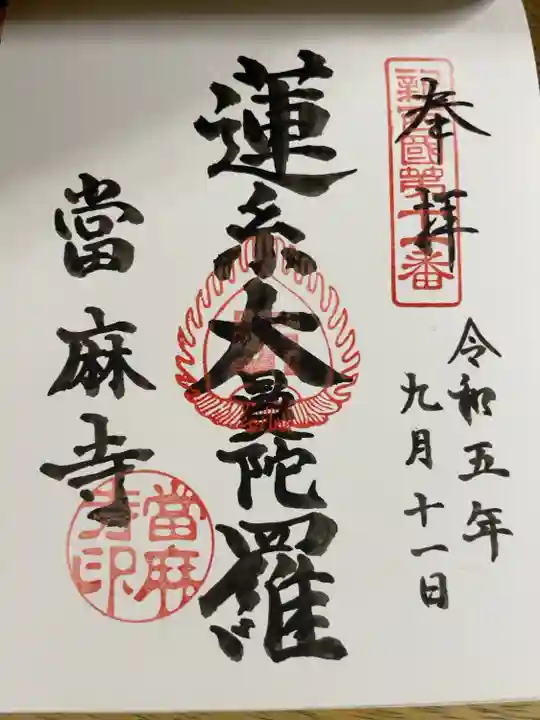 奉拝
新西國第十一番
令和五年
九月十一日
蓮糸大曼陀羅
當麻寺
當麻寺印